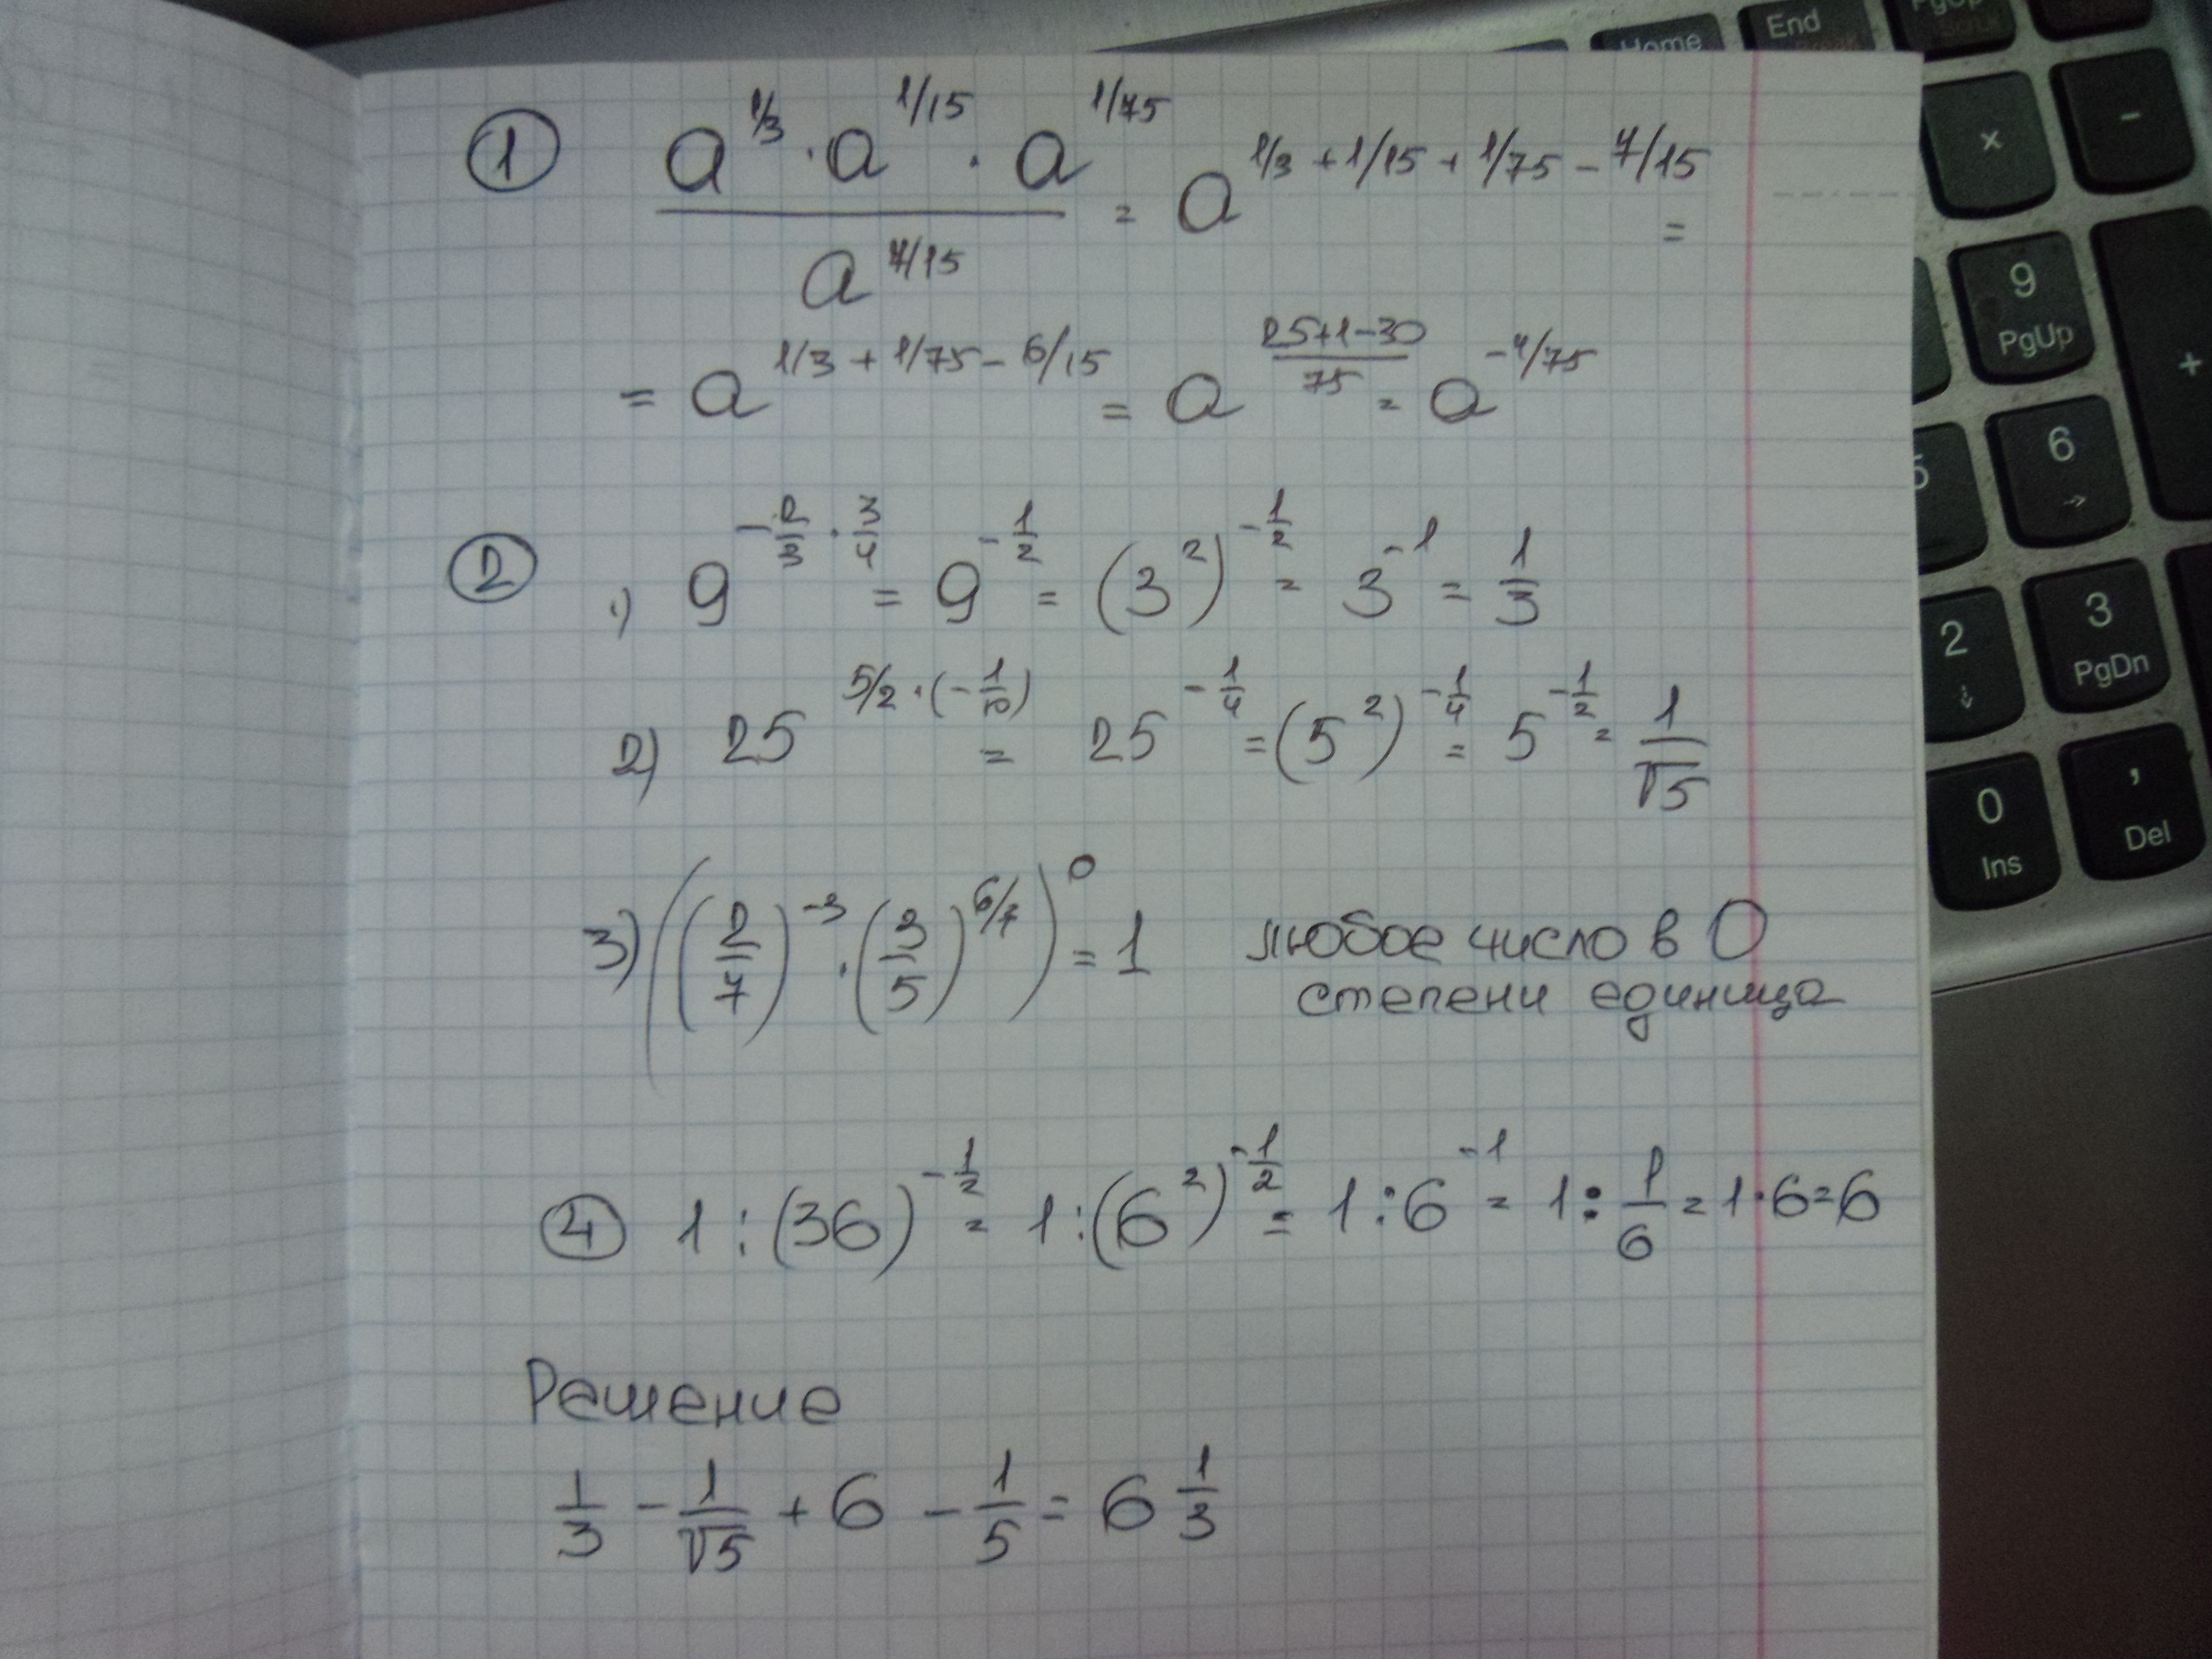 ① (a^(1/3) · a^(1/15) · a^(1/75)) / a^(7/15) = a^(1/3 + 1/15 + 1/75 – 7/15) =
= a^(1/3 + 1/75 – 6/15) = a^((25+1–30)/75) = a^(–4/75)
② 1) 9^(–2/3 · 3/4) = 9^(–1/2) = (3²)^(–1/2) = 3^(–1) = 1/3
2) 25^(5/2 · (–1/10)) = 25^(–1/4) = (5²)^(–1/4) = 5^(–1/2) = 1/√5
3) ((2/7)^(–3) · (3/5)^(6/7))^0 = 1 любое число в 0
степени единица
④ 1 : (36)^(–1/2) = 1 : (6²)^(–1/2) = 1 : 6^(–1) = 1 : 1/6 = 1 · 6 = 6
Решение
1/3 – 1/√5 + 6 – 1/5 = 6 1/3
Home
End
PgUp
×
-
9
PgUp
+
5
6
→
2
↓
3
PgDn
0
Ins
,
Del